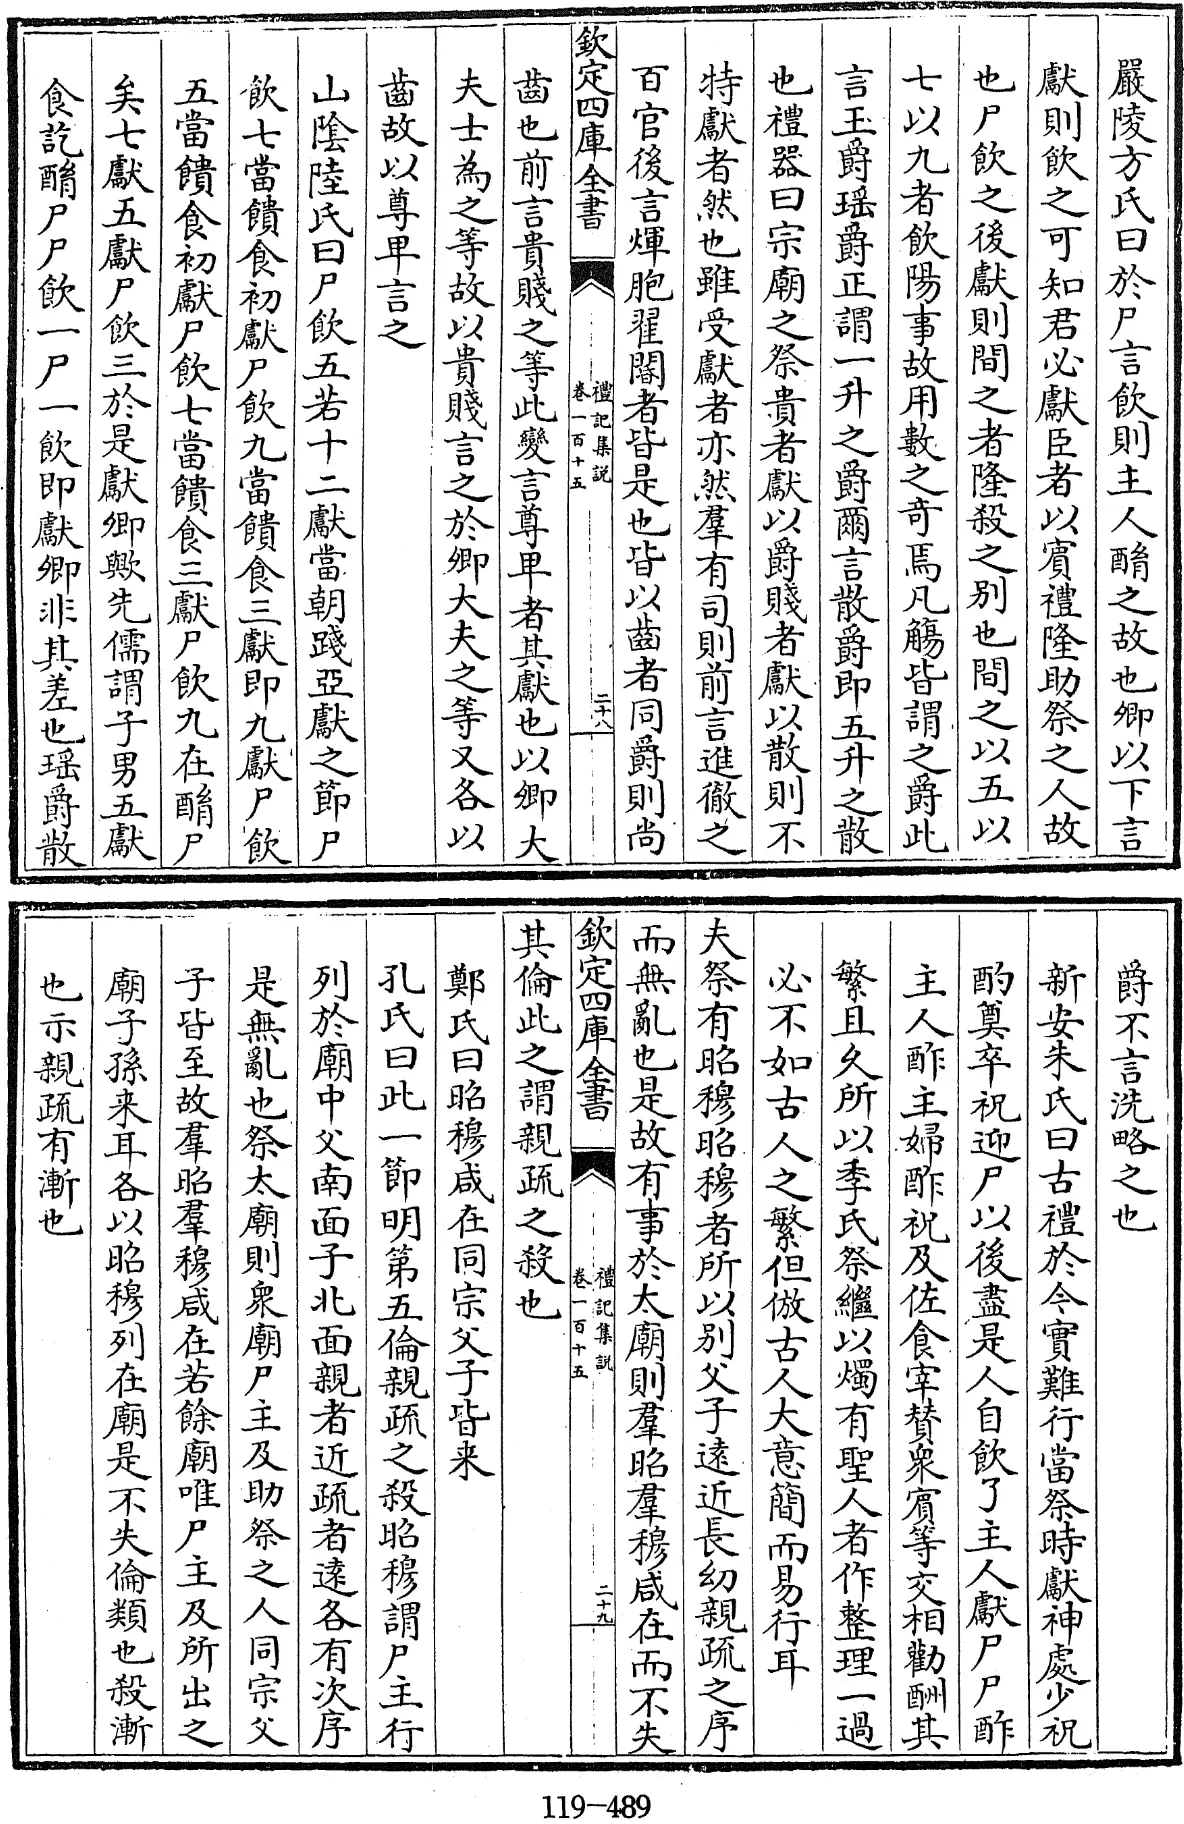 嚴陵方氏曰於尸言飲則主人酳之故也卿以下言
獻則飲之可知君必獻臣者以賓禮隆助祭之人故
也尸飲之後獻則間之者隆殺之别也間之以五以
七以九者飲陽事故用數之奇焉凡觴皆謂之爵此
言玉爵瑶爵正謂一升之爵爾言散爵即五升之散
也禮器曰宗廟之祭貴者獻以爵賤者獻以散則不
特獻者然也雖受獻者亦然羣有司則前言進徹之
百官後言煇胞翟閽者皆是也皆以齒者同爵則尚
欽定四庫全書
禮記集説
卷一百十五
二十八
齒也前言貴賤之等此變言尊卑者其獻也以卿大
夫士為之等故以貴賤言之於卿大夫之等又各以
齒故以尊卑言之
山陰陸氏曰尸飲五若十二獻當朝踐亞獻之節尸
飲七當饋食初獻尸飲九當饋食三獻即九獻尸飲
五當饋食初獻尸飲七當饋食三獻尸飲九在酳尸
矣七獻五獻尸飲三於是獻卿歟先儒謂子男五獻
食訖酳尸尸飲一尸一飲即獻卿非其差也瑶爵散
爵不言洗略之也
新安朱氏曰古禮於今實難行當祭時獻神處少祝
酌奠卒祝迎尸以後盡是人自飲了主人獻尸尸酢
主人酢主婦酢祝及佐食宰贊衆賓等交相勸酬其
繁且久所以季氏祭繼以燭有聖人者作整理一過
必不如古人之繁但倣古人大意簡而易行耳
夫祭有昭穆昭穆者所以别父子逺近長幼親疏之序
而無亂也是故有事於太廟則羣昭羣穆咸在而不失
欽定四庫全書
禮記集説
卷一百十五
二十九
其倫此之謂親疏之殺也
鄭氏曰昭穆咸在同宗父子皆来
孔氏曰此一節明第五倫親疏之殺昭穆謂尸主行
列於廟中父南面子北面親者近疏者逺各有次序
是無亂也祭太廟則衆廟尸主及助祭之人同宗父
子皆至故羣昭羣穆咸在若餘廟唯尸主及所出之
廟子孫来耳各以昭穆列在廟是不失倫類也殺漸
也示親疏有漸也
119-489